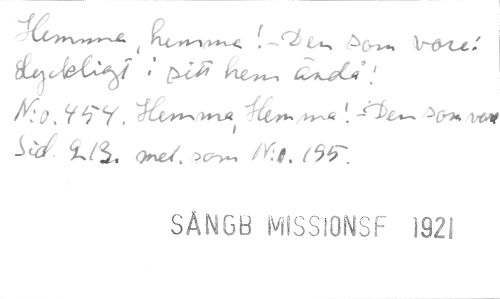 Hemma, hemma! - Den som vore:
Lyckligt i sitt hem ändå!
N:o. 454. Hemma, Hemma! - Den som vore
Sid. 213. mel. som N:o. 195.
SÅNGB MISSIONSF 1921